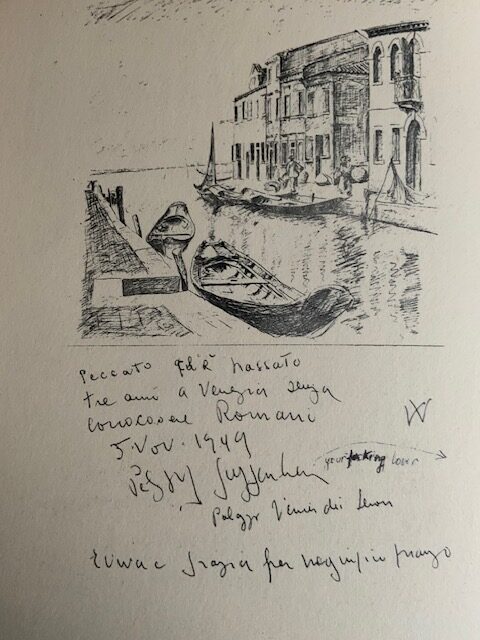 Peccato ch'è passato
tre anni a Venezia senza
conoscere Romano
5. Nov. 1949
Peggy Guggenheim
your fucking lover
Palazzo Venier dei Leoni
Evviva e grazie per magnifico pranzo